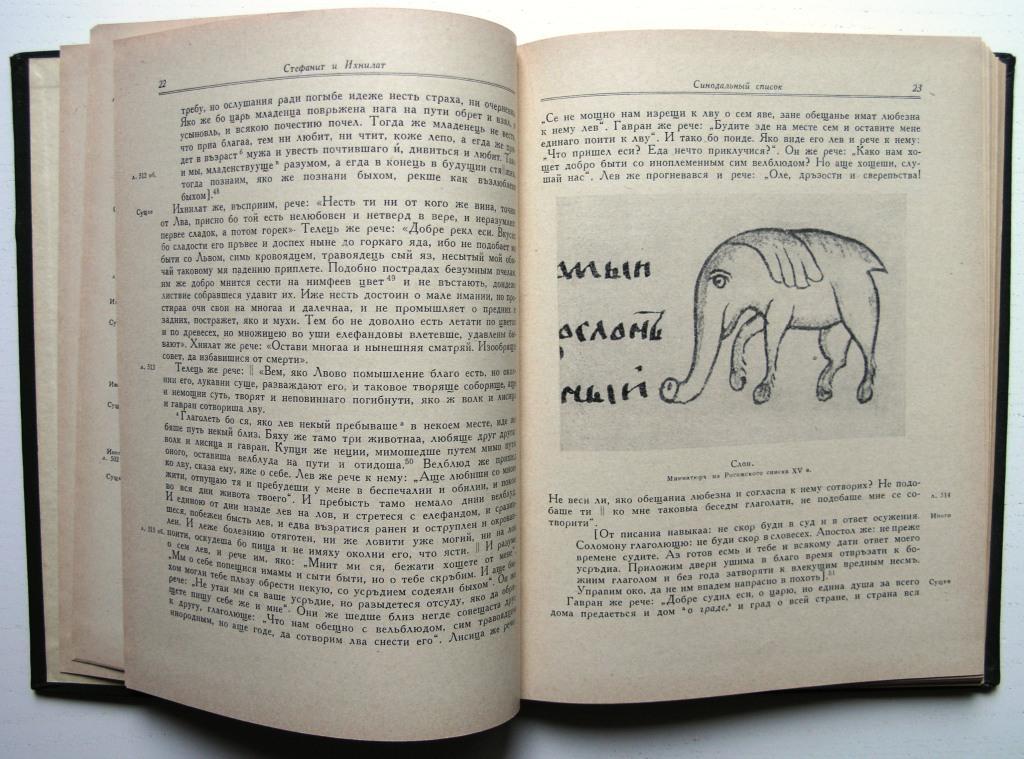 22
Стефанит и Ихнилат
требу, но ослушания ради погыбе идеже несть страха, ни
Яко же бо царь младенца повръжена нага на пути обрет и взял,
усыновль, и всякою почестию почел. Тогда же младенець не весть,
что приа благаа, тем ни любит, ни чтит, коже лепо, а егда
дет в възраст⁶ мужа и увесть почтившаго й, дивиться и любит.
и мы, младенствующе разумом, а егда в конець в будущии
л. 512 об.
тогда познаим, яко же познани быхом, рекше как
быхом].⁴⁸
Сущее
Ихнилат же, въсприим, рече: «Несть ти ни от кого же вина, точию
от Лва, присно бо той есть нелюбовен и нетверд в вере, и неразумне
первее сладок, а потом горек». Телець же рече: «Добре рекл еси.
бо сладости его пръвее и доспех ныне до горкаго яда, ибо не подобает ми
быти со Львом, симь кровоядцем, травоядець сый яз, несытый мой
чай таковому мя падению приплете. Подобно пострадах безумным пчелам,
им же добро мнится сести на нимфеев цвет⁴⁹ и не въстають, дондеже
листвие собравшеся удавит их. Иже несть достоин о мале имании, но
стираа очи свои на многаа и далечнаа, и не промышляет о предних и
задних, постражет, яко и мухи. Тем бо не доволно есть летати по цветии
и по древесех, но множицею во уши елефандовы влетевше, удавлени
вают». Хнилат же рече: «Остави многаа и нынешняя сматряй.
совет, да избавишися от смерти».
л. 513
Телець же рече: || «Вем, яко Лвово помышление благо есть, но
нии его, лукавни суще, разваждают его, и таковое творяще соборище, аще
и немощни суть, творят и неповиннаго погибнути, яко ж волк и лисица
и гавран сотвориша лву.
Глаголеть бо ся, яко лев некый пребываше в некоем месте, иде
бяше путь некый близ. Бяху же тамо три животнаа, любяще друг друга:
волк и лисица и гавран. Купци же неции, мимошедше путем мимо
оного, оставиша велблуда на пути и отидоша.⁵⁰ Велблюд же
ко лву, сказа ему, яже о себе. Лев же рече к нему: „Аще любиши со мною
жити, отпущаю тя и пребудеши у мене в беспечалии и обилии, и покои
во вся дни живота твоего“. И пребысть тамо немало днии велблуд.
И единою от дний изыде лев на лов, и стретеся с елефандом, и
шеся, побежен бысть лев, и едва възратися ранен и оструплен и
лен. И леже болезнию отяготен, ни же ловити уже могий, ни на
л. 513 об.
поити, оскудеша бо пища и не имяху околни его, что ясти. || И разуме
о сем лев, и рече им, яко: „Мнит ми ся, бежати хощете от мене“.
„Мы о себе попещися имамы и сыти быти, но о тебе скръбим. И аще бы
хом могли тебе пльзу обрести некую, со усръдием содеяли быхом“. Он же
рече: „Не утаи ми ся ваше усръдие, но разыдетеся отсуду, яко да
щете пищу себе же и мне“. Они же шедше близ негде совещаста друг
к другу, глаголюще: „Что нам обещно с вельблюдом, сим травоядцем
инородным, но аще годе, да сотворим лва снести его“. Лисица же рече:
л. 502
Синодальный список
23
„Се не мощно нам изрещи к лву о сем яве, зане обещанье имат любезна
к нему лев“. Гавран же рече: „Будите зде на месте сем и оставите мене
единаго поити к лву“. И тако бо поиде. Яко виде его лев и рече к нему:
„Что пришел еси? Еда нечто приключися?“. Он же рече: „Како нам хо-
щет добро быти со иноплеменным сим велблюдом? Но аще хощеши, слу-
шай нас“. Лев же прогневался и рече: „Оле, дръзости и сверепьства!
Слон.
Миниатюра из Рогожского списка XV в.
Не веси ли, яко обещаниа любезна и согласна к нему сотворих? Не подо-
л. 514
баше ти || ко мне таковыа беседы глаголати, не подобаше мне се со-
творити“.
Инако
[От писаниа навыкаа: не скор буди в суд и в ответ осужения.
Соломону глаголющю: не буди скор в словесех. Апостол же: не преже
времене судите. Аз готов есмь и тебе и всякому дати ответ моего
усръдиа. Приложим двери ушима в благо время отврьзати к бо-
жиим глаголом и без года затворяти к влекущим вредным несмъ.
Управим око, да не им впадем напрасно в похоть].⁵¹
Сущее
Гавран же рече: „Добре судил еси, о царю, но едина душа за всего
дома предаеться и дом о граде, и град о всей стране, и страна вся